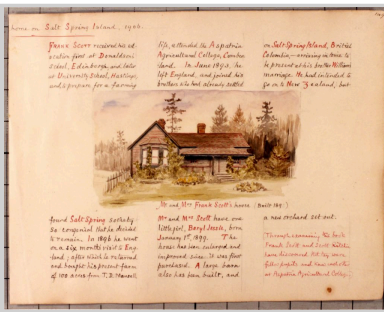 home on Salt Spring Island, 1906.
FRANK SCOTT received his ed-
ucation first at Donaldson's
School, Edinburgh, and later
at University School, Hastings,
and to prepare for a farming
life, attended the Aspatria
Agricultural College, Cumber-
land. In June 1892, he
left England, and joined his
brothers who had already settled
on Salt Spring Island, British
Columbia,— arriving in time to
be present at his brother William's
marriage. He had intended to
go on to New Zealand, but
Mr and Mrs Frank Scott's house (Built 189
found Salt Spring society
so congenial that he decided
to remain. In 1896 he went
on a six months visit to Eng-
land; after which he returned
and bought his present farm
of 100 acres from T. D. Mansell.
Mr and Mrs Scott have one
little girl, Beryl Jessie, born
January 1st, 1899. The
house has been enlarged and
improved since it was first
purchased. A large barn
also has been built, and
a new orchard set out.
Through examining this book
Frank Scott and Scott
have discovered that they were
fellow pupils and
at Aspatria Agricultural College.